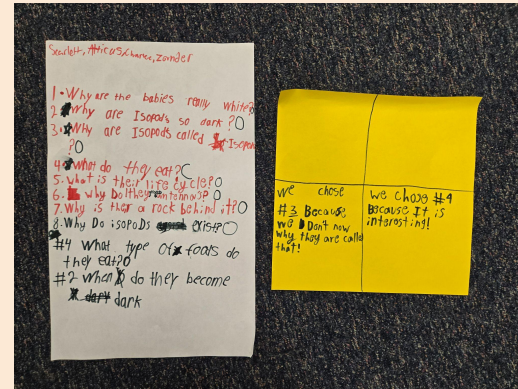 Scarlett, Atticus, chance, zander
1. Why are the babies really white?
2 Why are Isopods so dark ?O
3. Why are Isopods called Isopods
?O
4. What do they eat?C
5. What is their life cycle?O
6. why Do they antenna?O
7. Why is ther a rock behind it?O
8. Why Do isopods exist?O
#4 What type of foods do
they eat?O
#2 when do they become
dark
we chose
#3 Because
we Don't now
why they are called
that!
we chose #4
Because It is
interesting!